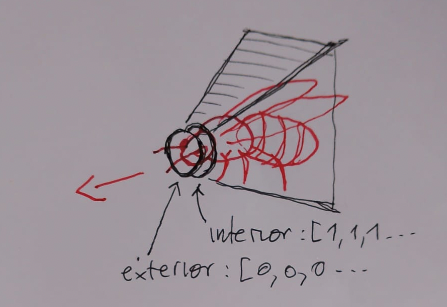 interior : [1, 1, 1 ...
exterior : [0, 0, 0 ...